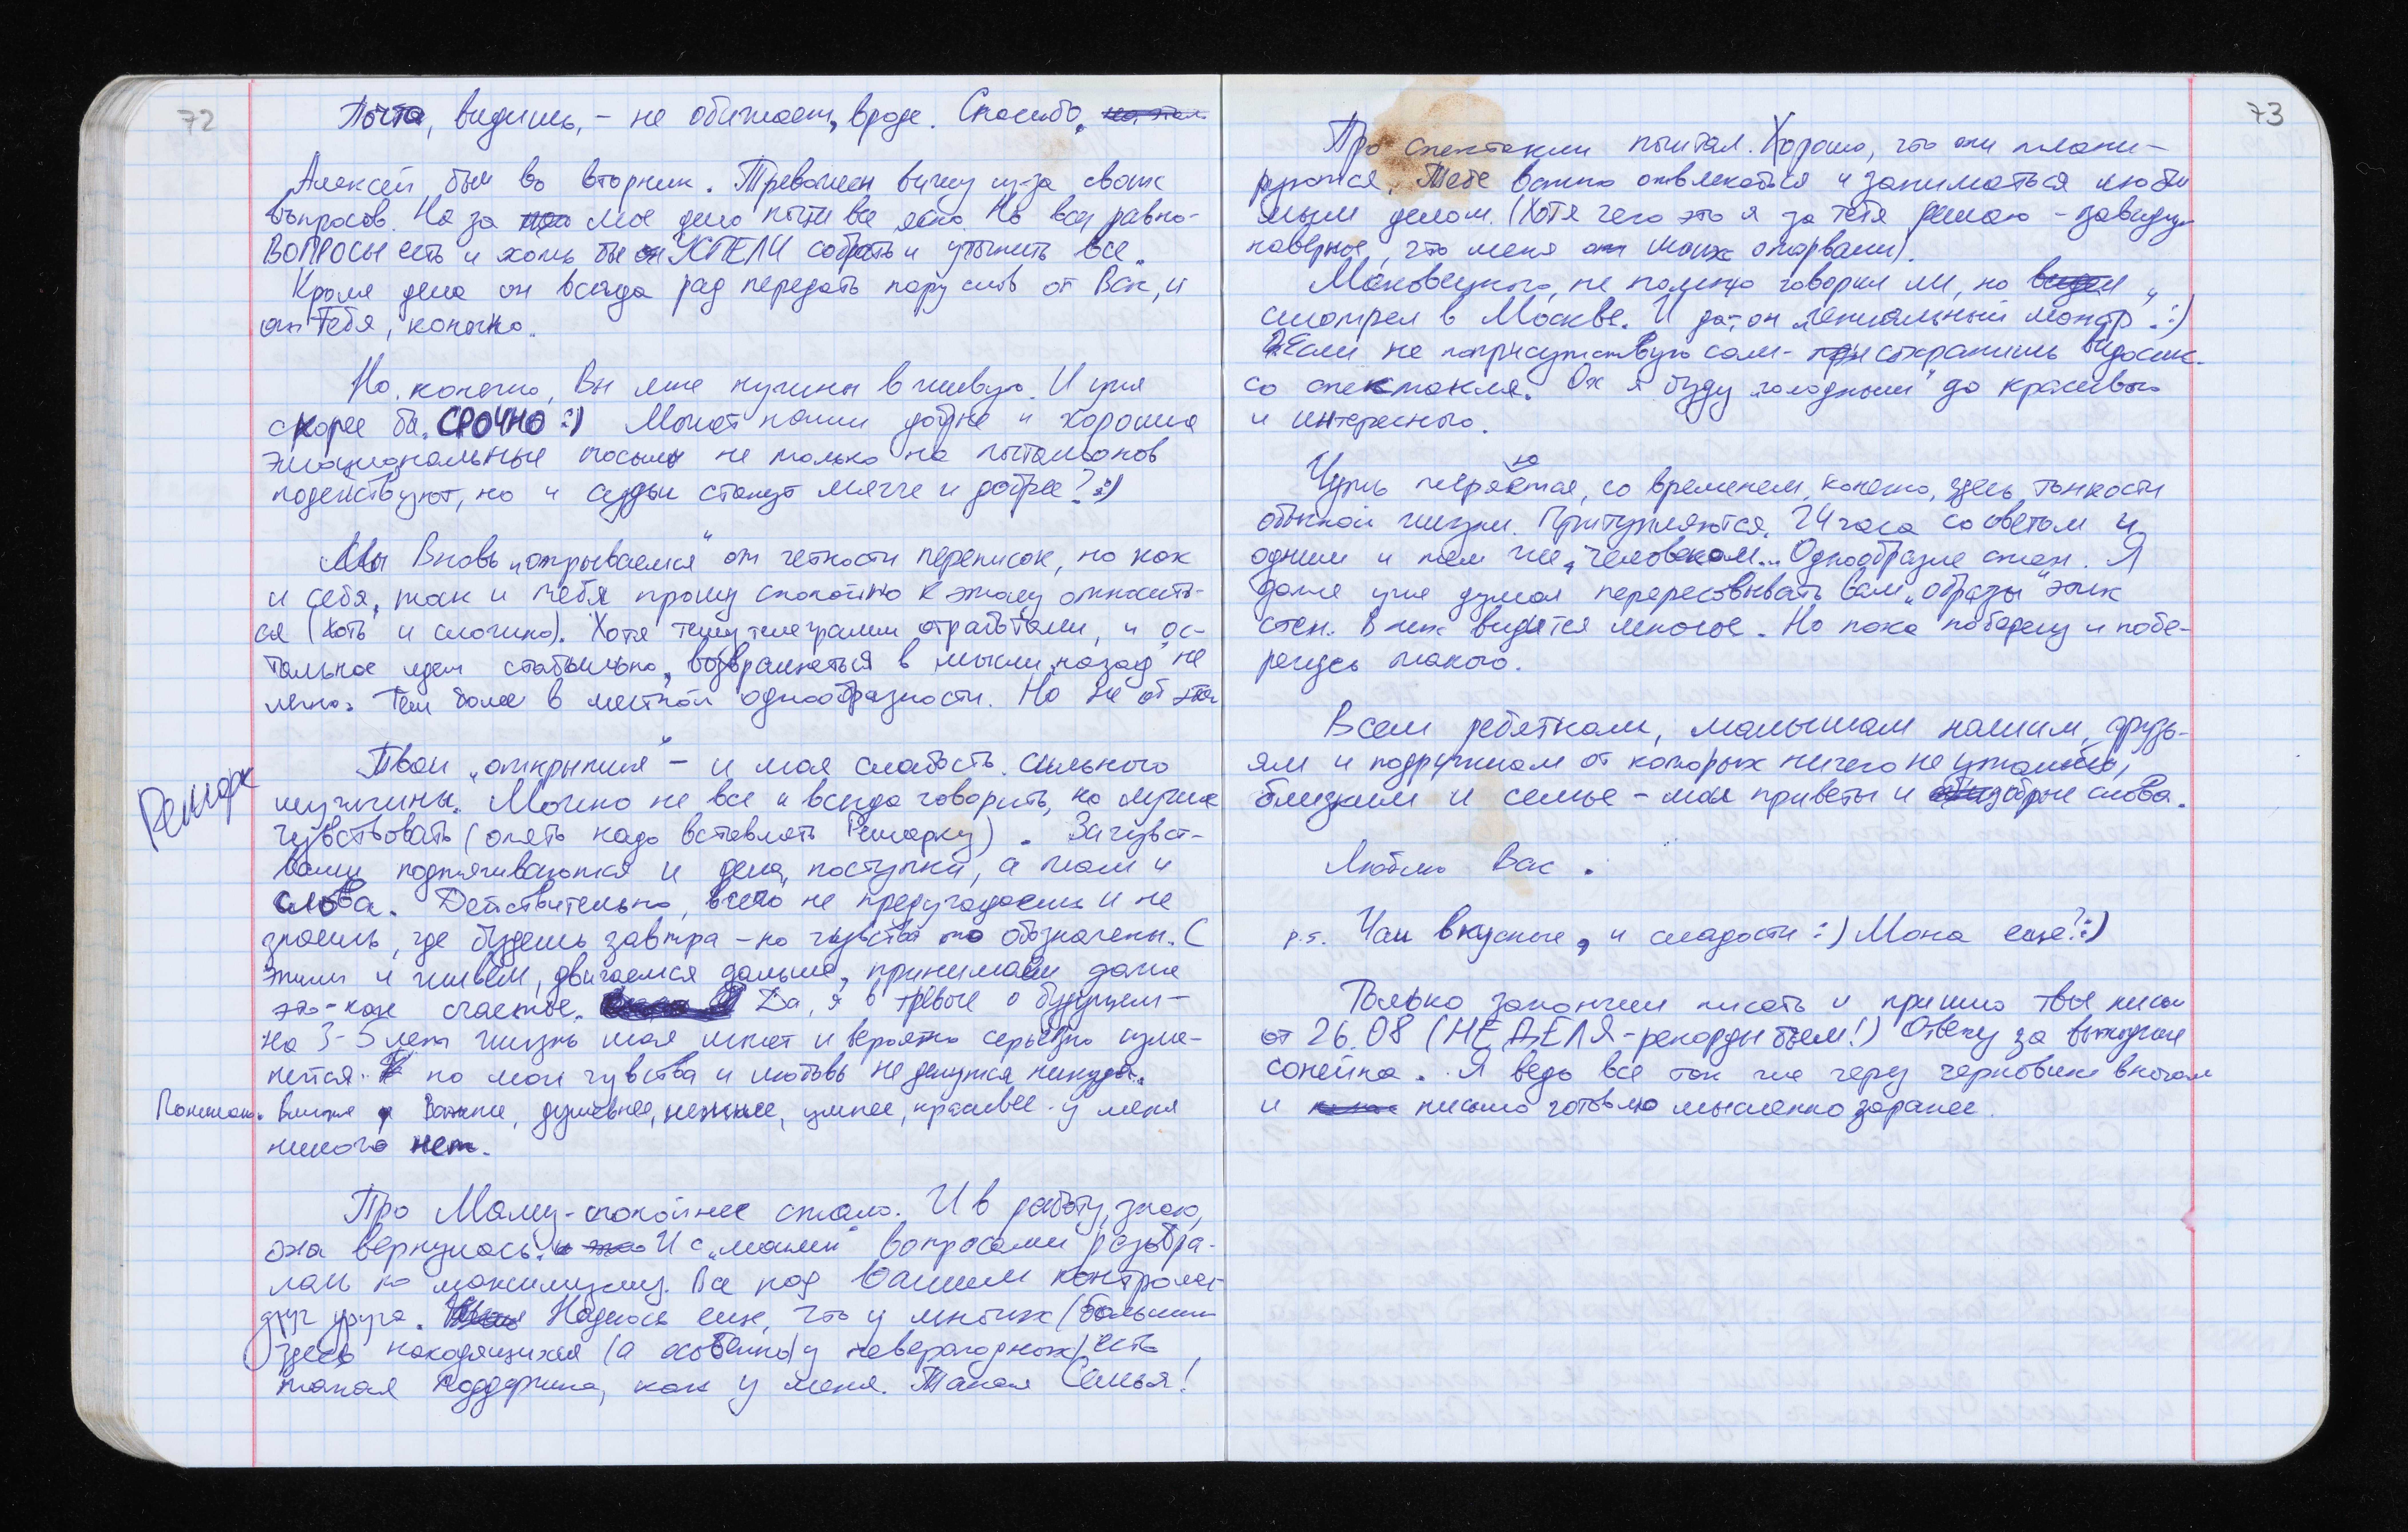 72
Почта, видишь, - не обижает, вроде. Спасибо.
Алексей был во вторник. Тревожен вижу из-за своих
вопросов. Но за мое дело почти все ясно. Но все равно-
ВОПРОСЫ есть и хоть бы УСПЕЛИ собрать и уточнить все.
Кроме дела он всегда рад передать пару слов от Вас, и
от Тебя, конечно.
Но, конечно, Вы мне нужны вживую. И уже
скорее бы. СРОЧНО :) Может наши добрые и хорошие
эмоциональные посылы не только на почтальонов
подействуют, но и судьи станут мягче и добрее? :)
Мы вновь „отрываемся" от четкости переписок, но как
и себя, так и тебя прошу спокойно к этому относить-
ся (хоть и сложно). Хотя тему телеграмм отработали, и ос-
тальное идет стабильно, возвращаться в мысли „назад" не
легко. Тем более в местной однообразности. Но не об этом
Ремарк
Твои „открытия" - и моя слабость сильного
мужчины. Можно не все и всегда говорить, но лучше
чувствовать (опять надо вставлять Ремарку). За чувст-
вами подтягиваются и дела, поступки, а там и
слова. Действительно, всего не предугадаешь и не
знаешь, где будешь завтра - но чувства то обозначены. С
этим и живем, двигаемся дальше, принимаем даже
это - как счастье. Да, я в тревоге о будущем -
на 3-5 лет жизнь моя может и вероятно серьезно изме-
нится. но мои чувства и любовь не денутся никуда.
Понимаю. Ближе, Важнее, душевнее, нежнее, умнее, красивее у меня
никого нет.
Про Маму - спокойнее стало. И в работу, знаю,
она вернулась. И с „моими" вопросами разобра-
лась по максимуму. Все под Вашим контролем
друг друга. Надеюсь еще, что у многих (больших
здесь находящихся (а особенно у невероятных) есть
такая поддержка, как у меня. Такая Семья!
73
Про спектакли читал. Хорошо, что они плани-
руются. Тебе важно отвлекаться и заниматься люби
мым делом. (Хотя чего это я за тебя решаю - завидую
наверное, что меня от моих оторвали).
Маковецкого, не помню говорил ли, но
смотрел в Москве. И да, он „гениальный монстр". :)
Если не поприсутствую сам - сохранишь видосик
со спектакля. Ох я буду „голодным" до красивого
и интересного.
Чуть теряются, со временем, конечно, здесь тонкости
обычной жизни. Притупляются. 24 часа со светом и
одним и тем же, человеком... Однообразие стен. Я
даже уже думал перерисовывать Вам „образы" этих
стен. В них видится многое. Но пока поберегу и побе-
регусь такого.
Всем ребяткам, малышам нашим, друзь-
ям и подружкам от которых ничего не утаишь,
близким и семье - мои приветы и добрые слова.
Люблю Вас.
p.s. Чаи вкусные, и сладости :) Можна еще? :)
Только закончил писать и пришло твое письмо
от 26.08 (НЕДЕЛЯ - рекорды бьем!) Отвечу за выходные
Я ведь все так же через черновики вначале
и письмо готовлю мысленно заранее.